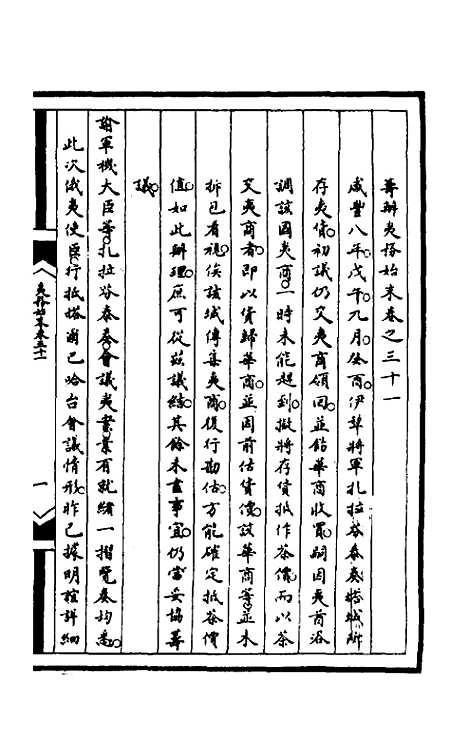 籌辦夷務始末卷之三十一
咸豐八年戊午九月癸酉伊犂將軍扎拉芬泰奏塔城所
存夷貨初議仍交夷商領回並飭華商收買嗣因夷酋咨
調該國夷商一時未能趕到擬將存貨抵作茶價而以茶
交夷商者即以貨歸華商並因前估貨價該華商等並未
拆包看視俟該城傳集夷商復行勘估方能確定抵茶價
值如此辦理庶可從茲議結其餘未盡事宜仍當妥協籌
議
諭軍機大臣等扎拉芬泰奏會議夷業業有就緒一摺覽奏均悉
此次俄夷使臣行抵塔爾巴哈台會議情形昨已據明誼詳細
夷務始末卷三十一
一